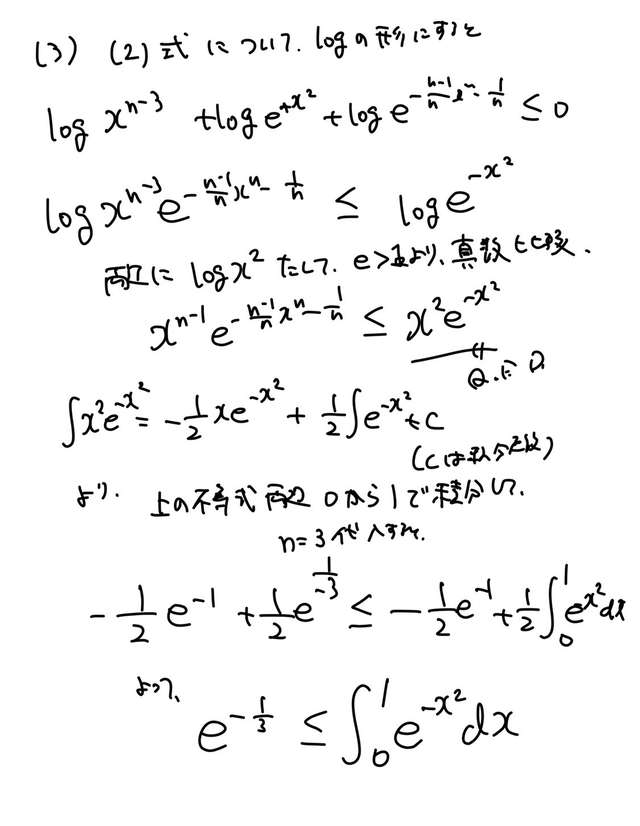 (3) (2)式について、logの形にすると
log x^{n-3} + log e^{+x^2} + log e^{-\frac{n-1}{n}x^n - \frac{1}{n}} ≤ 0
log x^{n-3} e^{-\frac{n-1}{n}x^n - \frac{1}{n}} ≤ log e^{-x^2}
両辺に log x^2 たして、e>1より、真数を比較、
x^{n-1} e^{-\frac{n-1}{n}x^n - \frac{1}{n}} ≤ x^2 e^{-x^2}
∫x^2 e^{-x^2} = -\frac{1}{2}xe^{-x^2} + \frac{1}{2}∫e^{-x^2} + C
(Cは積分定数)
より、上の不等式両辺0から1で積分して、
n=3代入すると、
-\frac{1}{2}e^{-1} + \frac{1}{2}e^{-\frac{1}{3}} ≤ -\frac{1}{2}e^{-1} + \frac{1}{2}∫_0^1 e^{x^2}dx
よって、
e^{-\frac{1}{3}} ≤ ∫_0^1 e^{-x^2}dx